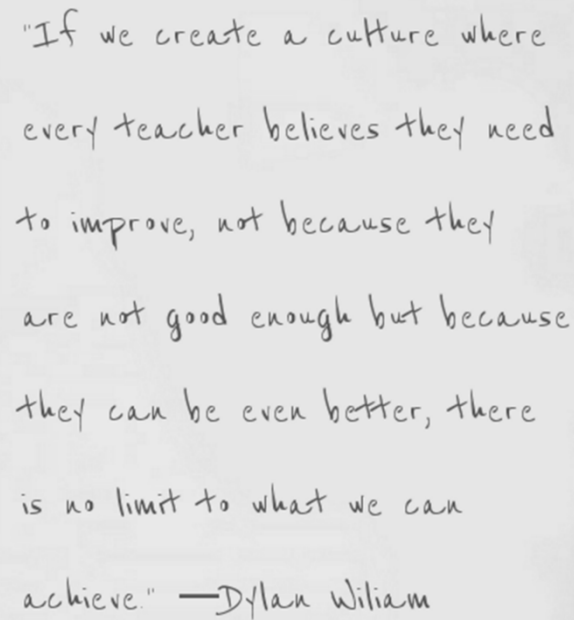 "If we create a culture where
every teacher believes they need
to improve, not because they
are not good enough but because
they can be even better, there
is no limit to what we can
achieve." —Dylan Wiliam